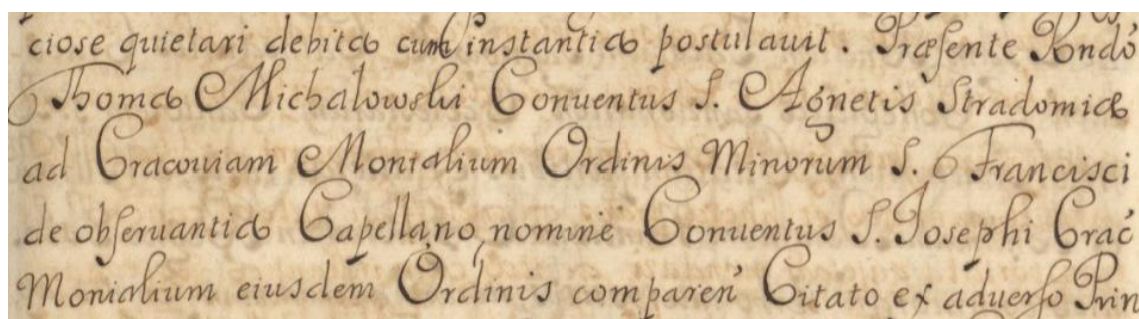 ciose quietari debita cum instantia postulauit. Præsente Rndo
Thoma Michalowski Conuentus S. Agnetis Stradomiæ
ad Cracouiam Monialium Ordinis Minorum S. Francisci
de obseruantia Capellano, nomine Conuentus S. Josephi Crac
Monialium eiusdem Ordinis comparen Citato ex aduerso Prin